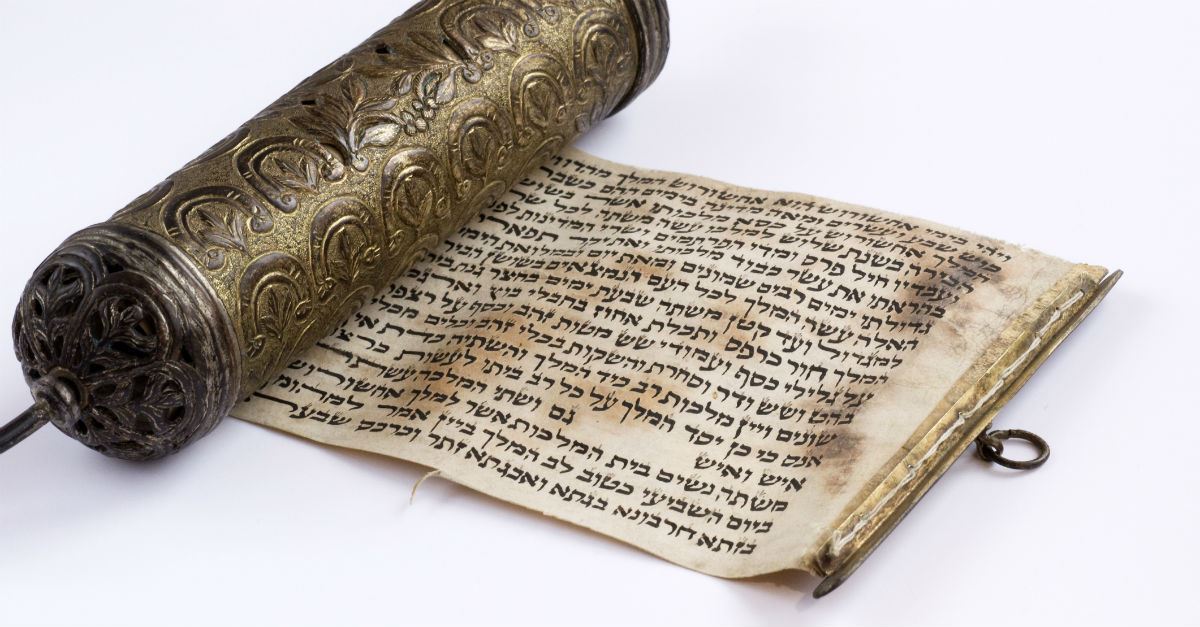 ויהי בימי אחשורוש הוא אחשורוש המלך מהדו
כוש שבע ועשרים ומאה מדינה בימים ההם כשבת
המלך אחשורוש על כסא מלכותו אשר
הבירה בשנת שלוש למלכו עשה משתה לכל
ועבדיו חיל פרס ומדי הפרתמים ושרי המדינות
בהראתו את עשר כבוד מלכותו ואת יקר
גדולתו ימים רבים שמונים ומאת יום ובמלואת
האלה עשה המלך לכל העם הנמצאים
למגדול ועד קטן משתה שבעת ימים בחצר
המלך חור כרפס ותכלת אחוז בחבלי בוץ
על גלילי כסף ועמודי שש מטות זהב וכסף על
בהט ושש ודר וסחרת והשקות בכלי זהב וכלים
שונים ויין מלכות רב כיד המלך והשתיה כדת
אנס כי כן יסד המלך על כל רב ביתו לעשות
איש ואיש גם ושתי המלכה
משתה נשים בית המלכות אשר למלך אחשורוש
ביום השביעי כטוב לב המלך ביין אמר
בזתא חרבונא בגתא ואבגתא זתר וכרכס